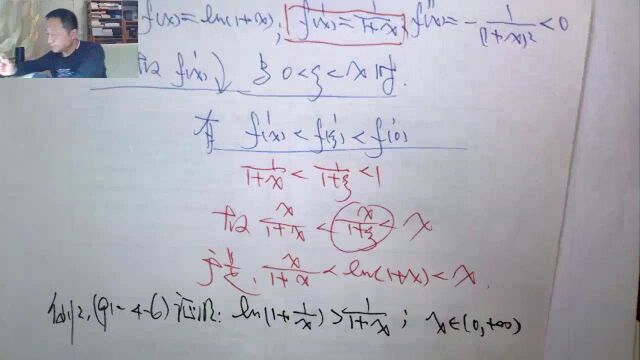 f(x)=ln(1+x), f'(x)=1/(1+x), f''(x)=-1/(1+x)²<0
f'(x)↓ 当 0<ξ<x 时.
有 f'(x)<f'(ξ)<f'(0)
1/(1+x)<1/(1+ξ)<1
故 x/(1+x)<x/(1+ξ)<x
于是, x/(1+x)<ln(1+x)<x.
例2,(91-4-6)证明: ln(1+1/x)>1/(1+x); x∈(0,+∞)